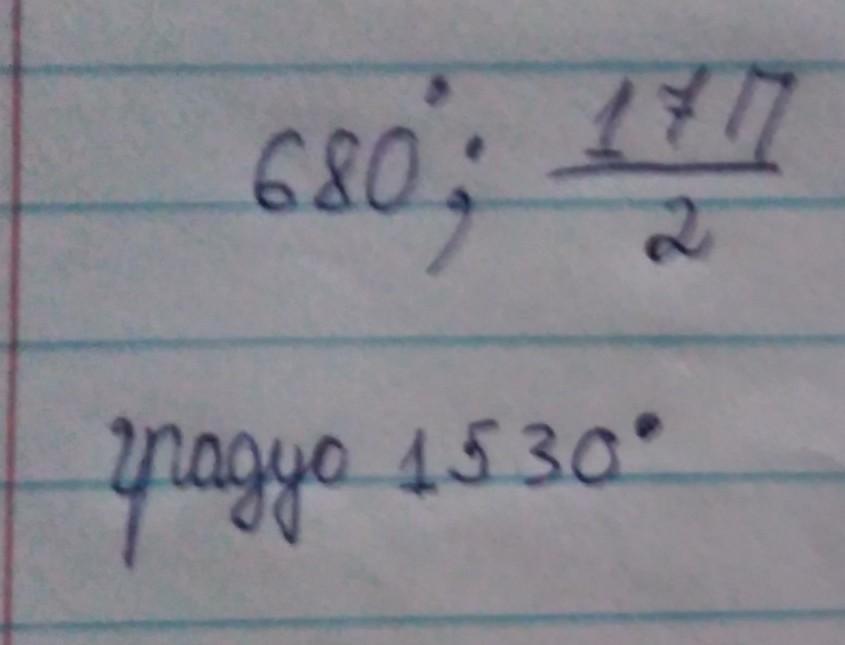 680°; 17П/2
градус 1530°